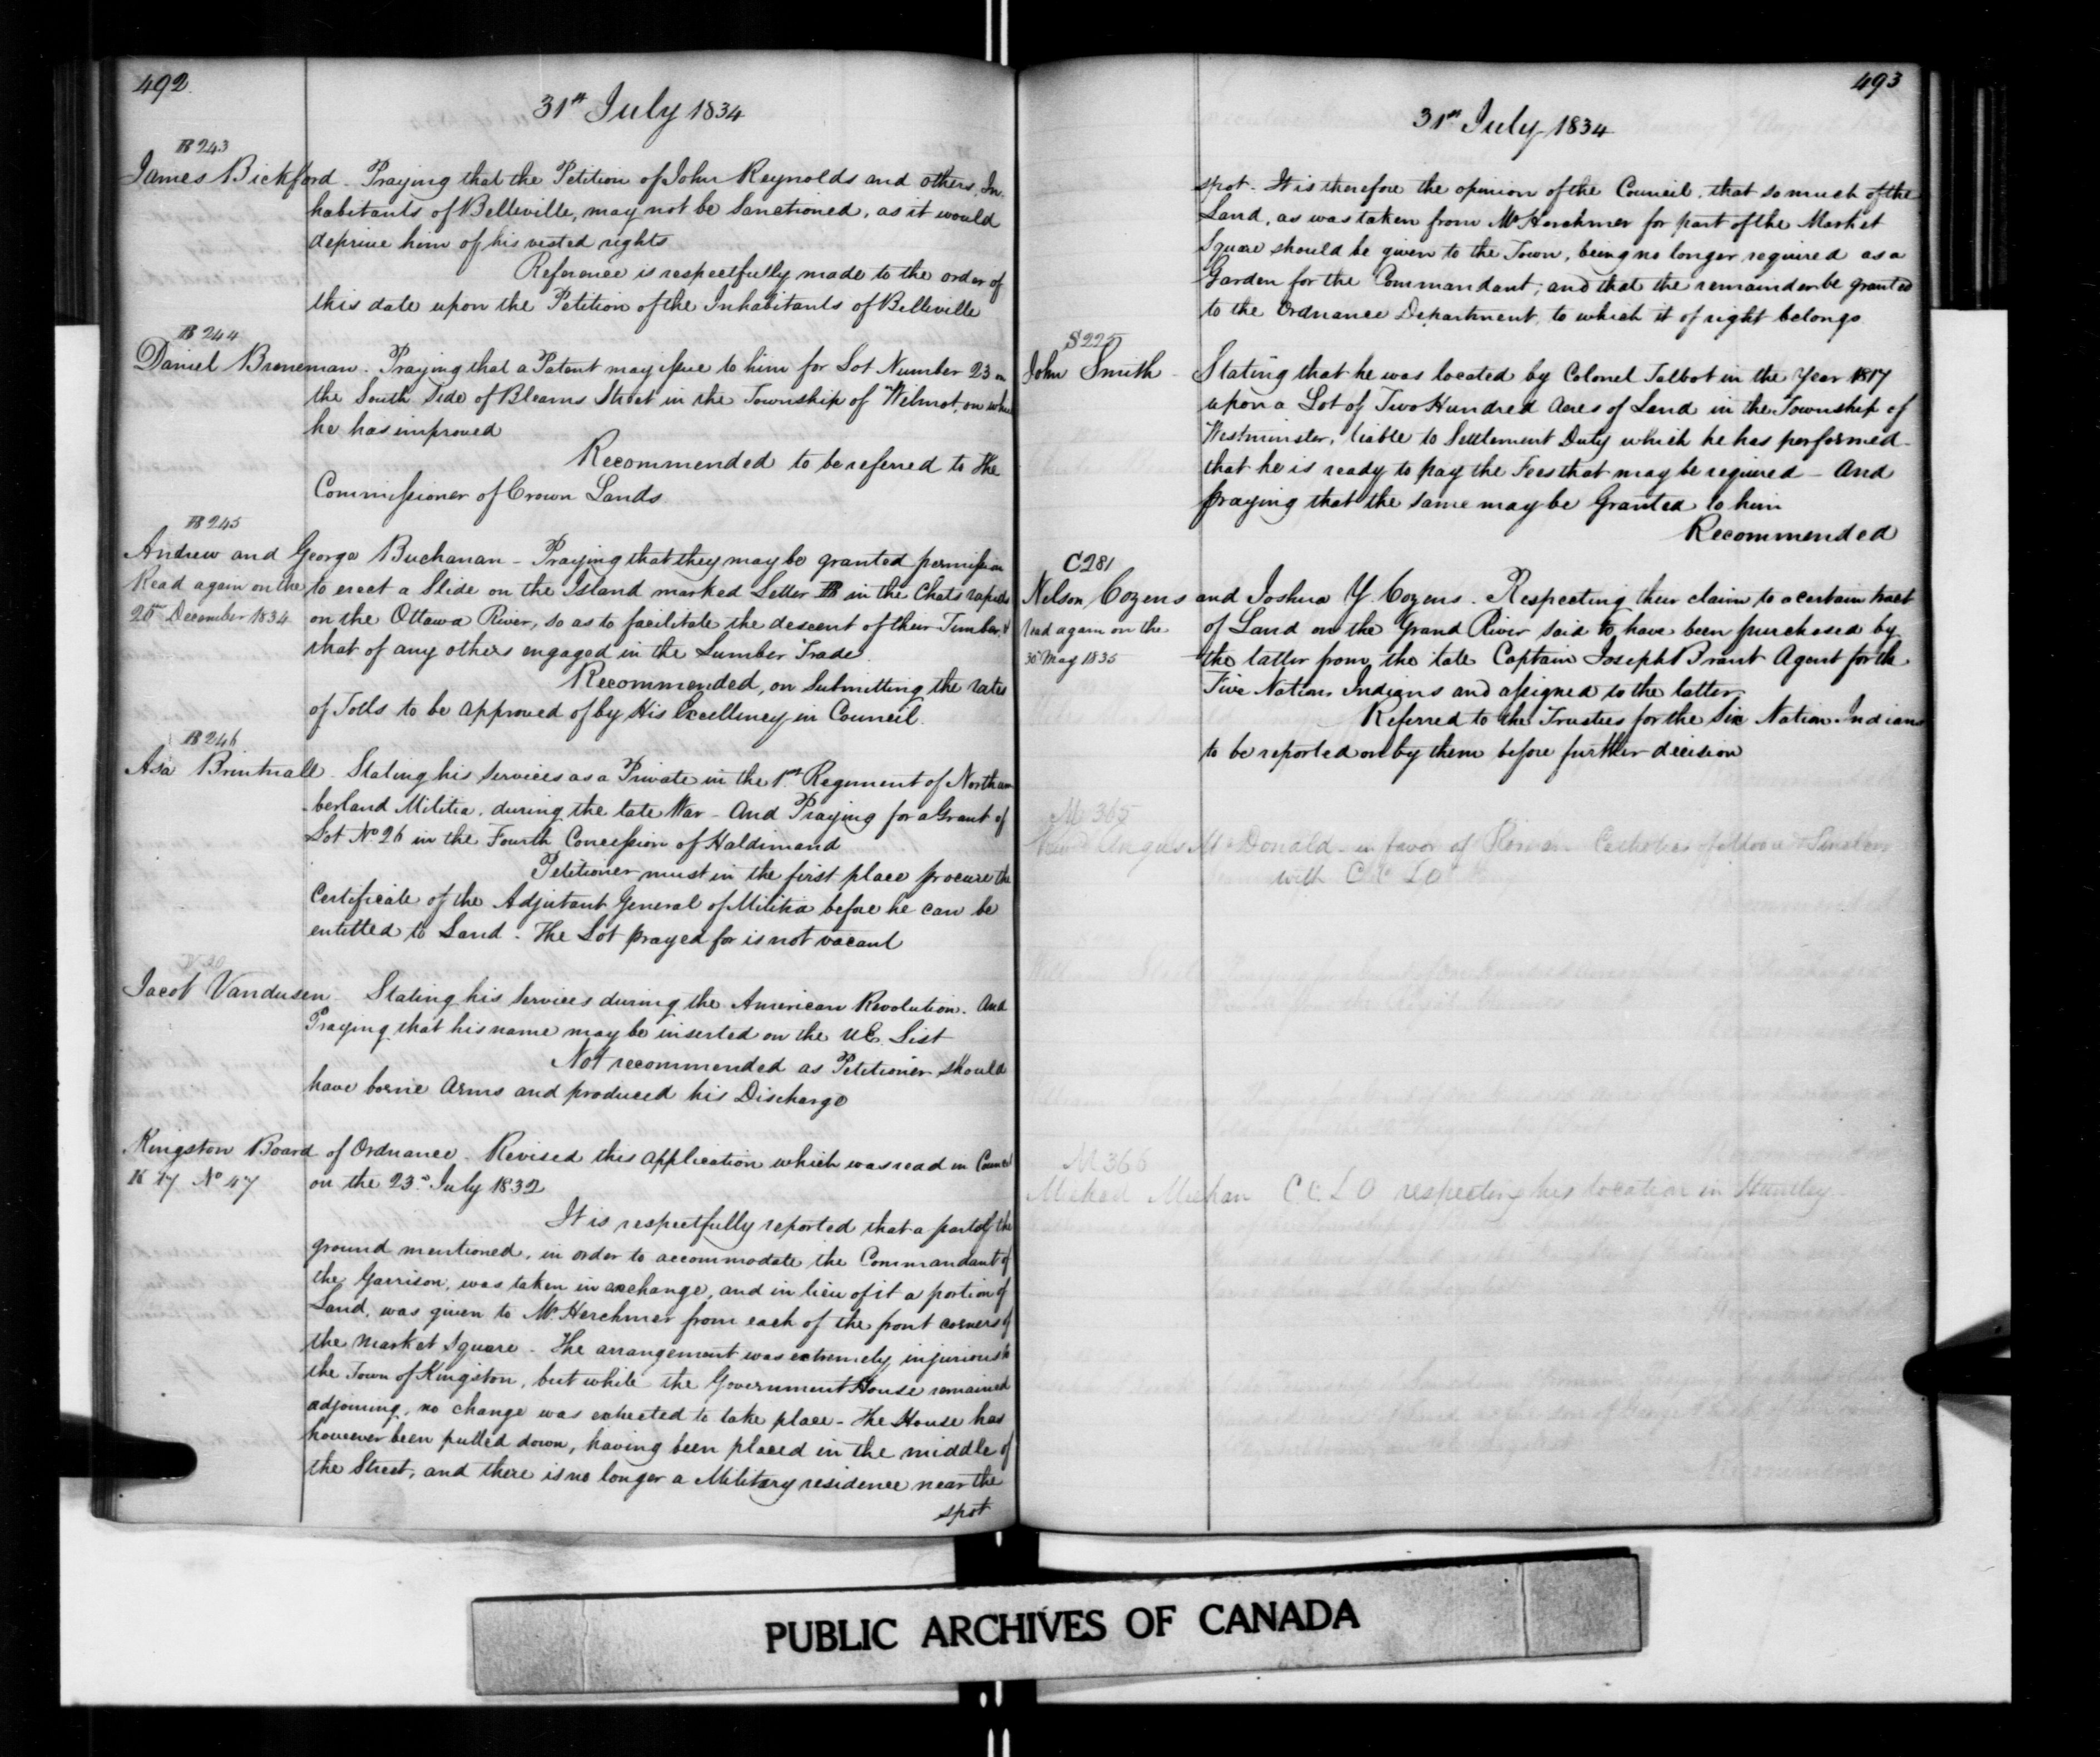 492
31st July 1834
B 243
James Bickford - Praying that the Petition of John Reynolds and others, In-
habitants of Belleville, may not be Sanctioned, as it would
deprive him of his vested rights
Reference is respectfully made to the order of
this date upon the Petition of the Inhabitants of Belleville
B 244
Daniel Breneman - Praying that a Patent may issue to him for Lot Number 23 on
the South Side of Bleams Street in the Township of Wilmot, on which
he has improved
Recommended to be referred to the
Commissioner of Crown Lands
B 245
Andrew and George Buchanan - Praying that they may be granted permission
Read again on the
to erect a Slide on the Island marked Letter B in the Chats rapids
December 1834
on the Ottawa River, so as to facilitate the descent of their Timber &
that of any others engaged in the Lumber Trade
Recommended, on Submitting the rates
of Tolls to be approved of by His Excellency in Council
B 246
Asa Brintnall - Stating his Services as a Private in the 1st Regiment of Northum
berland Militia, during the late War - And Praying for a Grant of
Lot No 26 in the Fourth Concession of Haldimand
Petitioner must in the first place procure the
Certificate of the Adjutant General of Militia before he can be
entitled to Land - The Lot prayed for is not vacant
Jacob Vandusen - Stating his Services during the American Revolution - And
Praying that his name may be inserted on the U.E. List
Not recommended as Petitioner should
have borne Arms and produced his Discharge
Kingston Board of Ordnance - Revised this application which was read in Council
K 17 No 47
on the 23d July 1832
It is respectfully reported that a part of the
ground mentioned, in order to accommodate the Commandant of
the Garrison, was taken in exchange, and in lieu of it a portion of
Land, was given to Mr Herchmer from each of the front corners of
the Market Square - The arrangement was extremely injurious to
the Town of Kingston, but while the Government House remained
adjoining, no change was expected to take place - The House has
however been pulled down, having been placed in the middle of
the Street, and there is no longer a Military residence near the
spot
493
31st July 1834
spot - It is therefore the opinion of the Council, that so much of the
Land, as was taken from Mr Herchmer for part of the Market
Square should be given to the Town, being no longer required as a
Garden for the Commandant, and that the remainder be granted
to the Ordnance Department, to which it of right belongs
S 225
John Smith - Stating that he was located by Colonel Talbot in the Year 1817
upon a Lot of Two Hundred Acres of Land in the Township of
Westminster, liable to Settlement Duty which he has performed -
that he is ready to pay the Fees that may be required - And
praying that the same may be Granted to him
Recommended
C 281
Nelson Cozens and Joshua Y. Cozens - Respecting their claim to a certain tract
read again on the
of Land on the Grand River said to have been purchased by
30 May 1835
the latter from the late Captain Joseph Brant Agent for the
Five Nations Indians and assigned to the latter
Referred to the Trustees for the Six Nation Indians
to be reported on by them before further decision
M 365
Angus McDonald - in favor of Catholics of
with C C L O
M 366
Michael Meehan C C L O respecting his location in Huntley
PUBLIC ARCHIVES OF CANADA